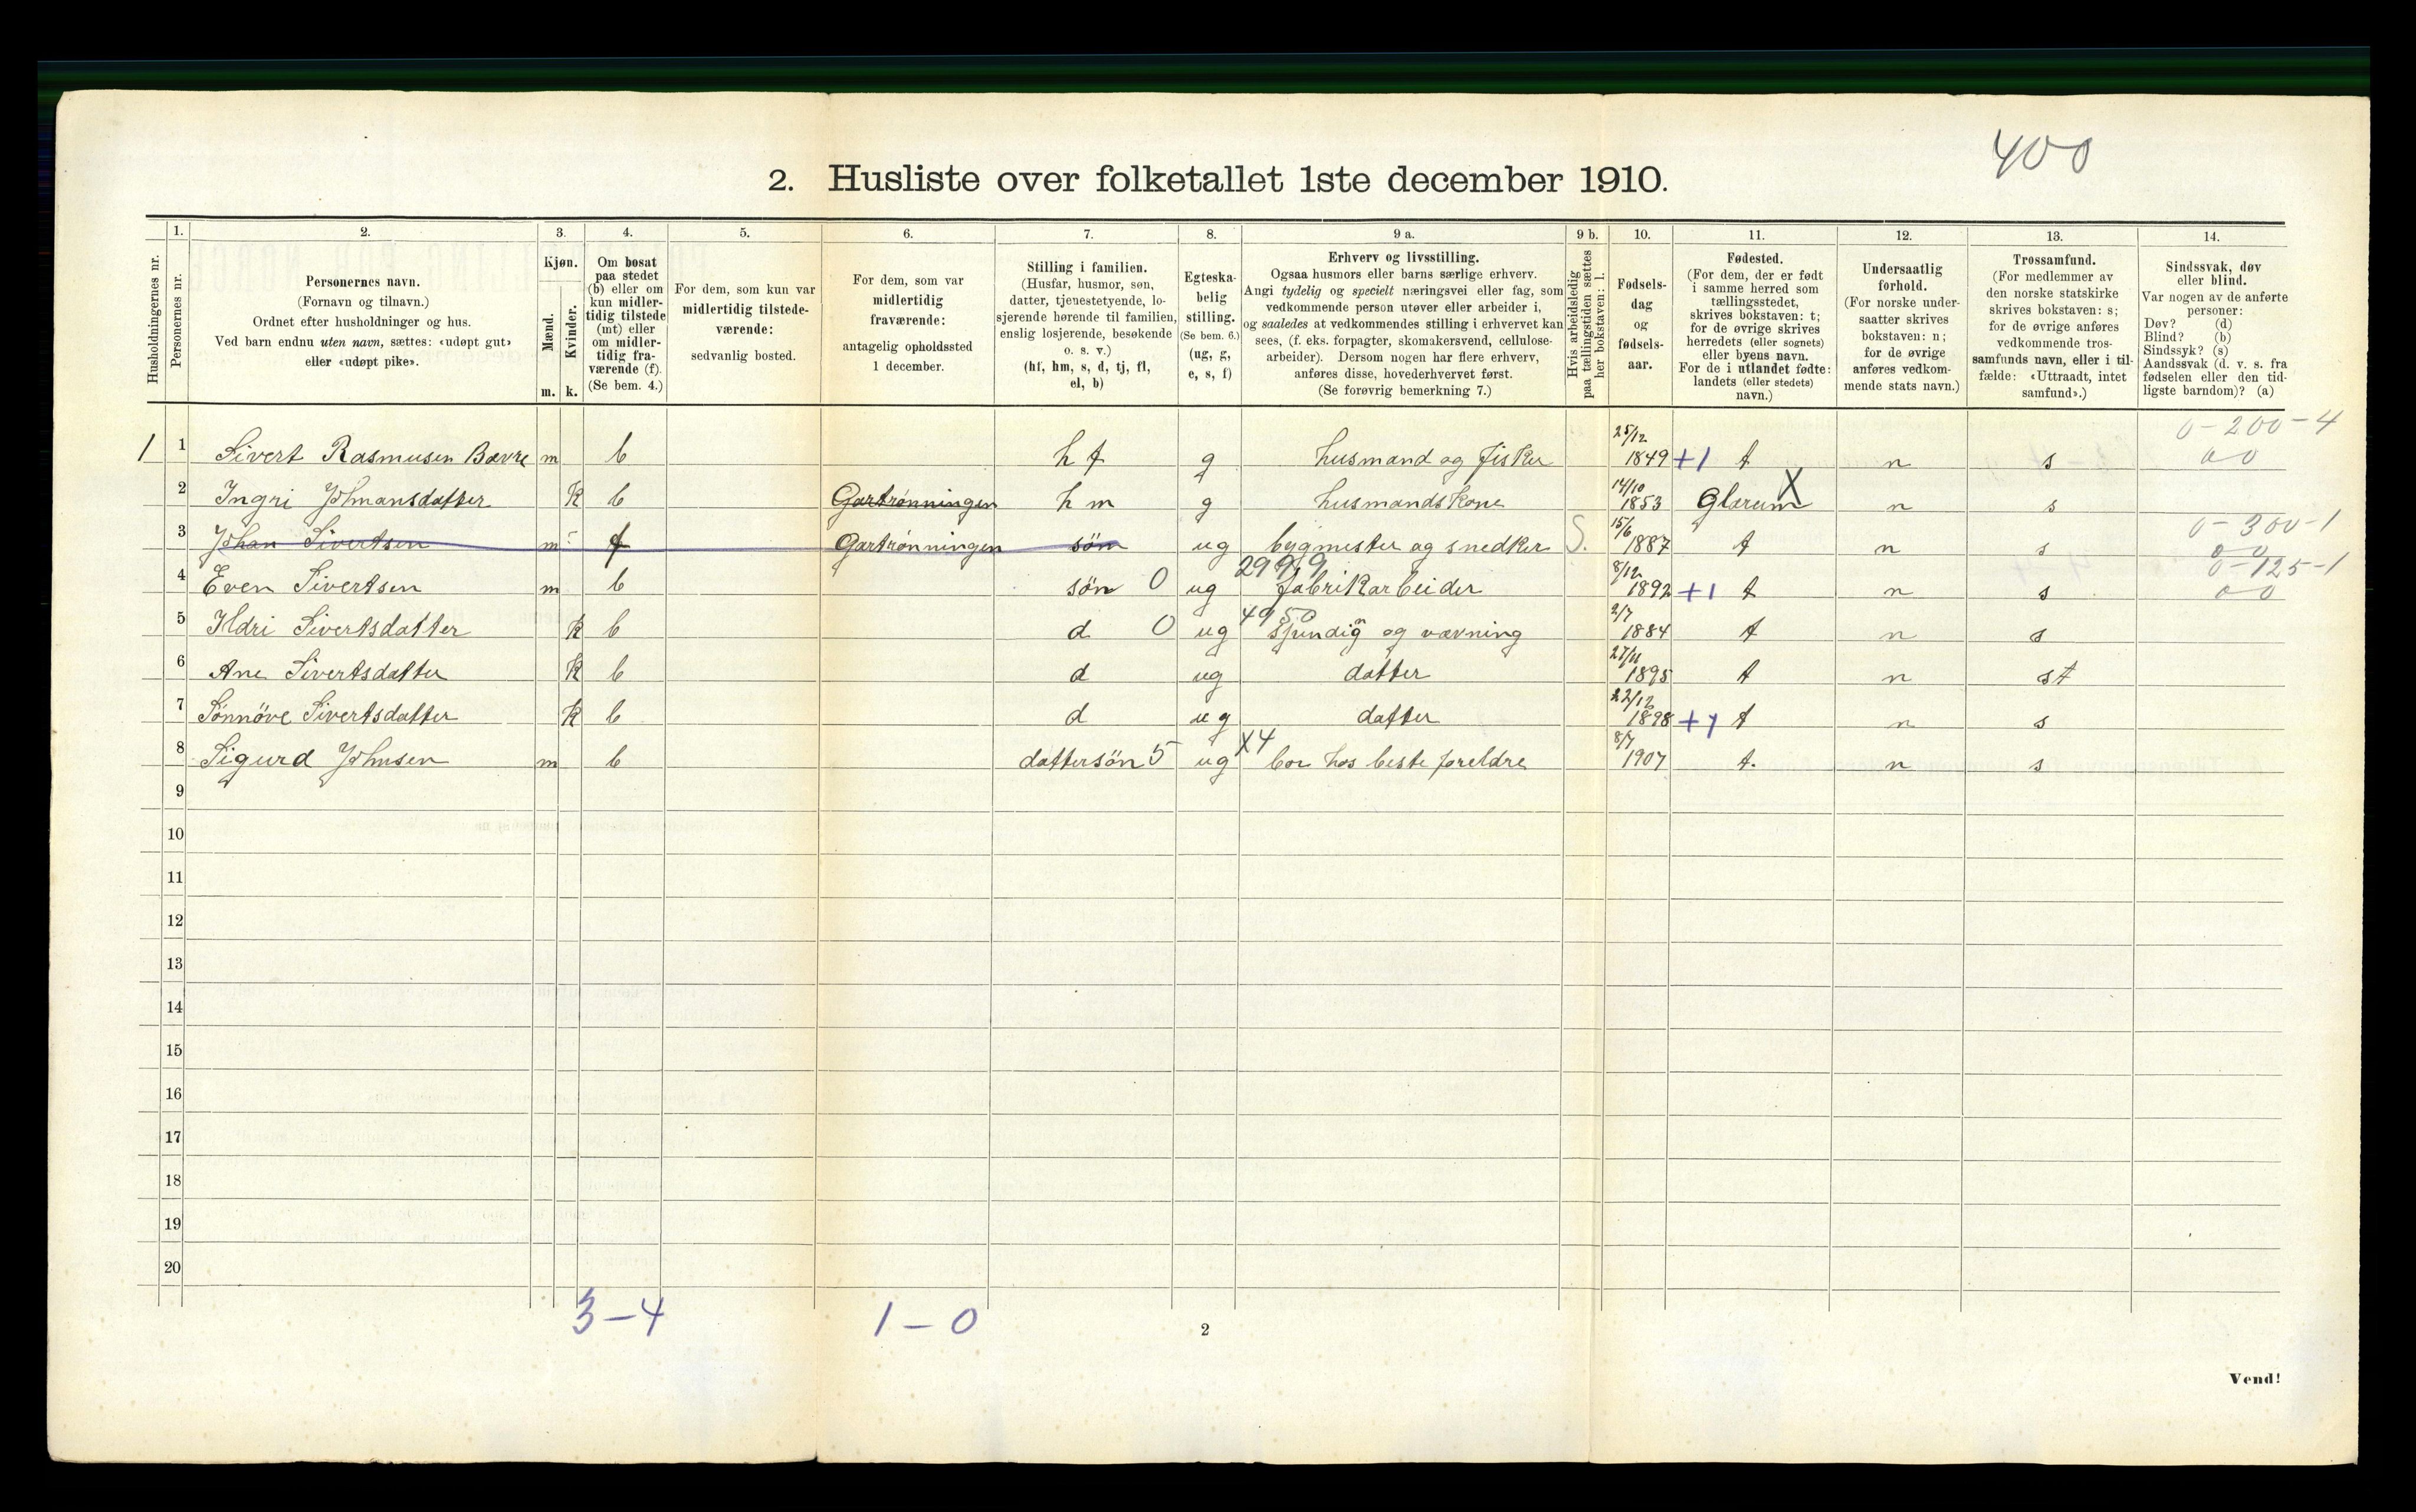 400
2. Husliste over folketallet 1ste december 1910.
Husholdningernes nr.
1.
Personernes nr.
2.
Personernes navn.
(Fornavn og tilnavn.)
Ordnet efter husholdninger og hus.
Ved barn endnu uten navn, sættes: «udøpt gut»
eller «udøpt pike».
3.
Kjøn.
Mænd.
Kvinder.
m. k.
4.
Om bosat
paa stedet
(b) eller om
kun midler-
tidig tilstede
(mt) eller
om midler-
tidig fra-
værende (f).
(Se bem. 4.)
5.
For dem, som kun var
midlertidig tilstede-
værende:
sedvanlig bosted.
6.
For dem, som var
midlertidig
fraværende:
antagelig opholdssted
1 december.
7.
Stilling i familien.
(Husfar, husmor, søn,
datter, tjenestetyende, lo-
sjerende hørende til familien,
enslig losjerende, besøkende
o. s. v.)
(hf, hm, s, d, tj, fl,
el, b)
8.
Egteska-
belig
stilling.
(Se bem. 6.)
(ug, g,
e, s, f)
9 a.
Erhverv og livsstilling.
Ogsaa husmors eller barns særlige erhverv.
Angi tydelig og specielt næringsvei eller fag, som
vedkommende person utøver eller arbeider i,
og saaledes at vedkommendes stilling i erhvervet kan
sees, (f. eks. forpagter, skomakersvend, cellulose-
arbeider). Dersom nogen har flere erhverv,
anføres disse, hovederhvervet først.
(Se forøvrig bemerkning 7.)
9 b.
Hvis arbeidsledig
paa tællingstiden sættes
her bokstaven: l.
10.
Fødsels-
dag
og
fødsels-
aar.
11.
Fødested.
(For dem, der er født
i samme herred som
tællingsstedet,
skrives bokstaven: t;
for de øvrige skrives
herredets (eller sognets)
eller byens navn.
For de i utlandet fødte:
landets (eller stedets)
navn.)
12.
Undersaatlig
forhold.
(For norske under-
saatter skrives
bokstaven: n;
for de øvrige
anføres vedkom-
mende stats navn.)
13.
Trossamfund.
(For medlemmer av
den norske statskirke
skrives bokstaven: s;
for de øvrige anføres
vedkommende tros-
samfunds navn, eller i til-
fælde: «Uttraadt, intet
samfund».)
14.
Sindssvak, døv
eller blind.
Var nogen av de anførte
personer:
Døv? (d)
Blind? (b)
Sindssyk? (s)
Aandssvak (d. v. s. fra
fødselen eller den tid-
ligste barndom)? (a)
1 1 Sivert Rasmusen Bævre m b h f g husmand og fisker 25/12 1849 +1 t n s 0-200-4 0 0
2 Ingri Johnansdatter k b Gartrønningen h m g husmandskone 14/10 1853 Glærum X n s
3 Johan Sivertsen m f Gartrønningen søn ug bygmester og snedker S. 15/6 1887 t n s 0-300-1 0 0
4 Even Sivertsen m b søn 0 ug fabrikarbeider 8/12 1892 +1 t n s 0-125-1 0 0
5 Ildri Sivertsdatter k b d 0 ug 4950 og vævning 2/7 1884 t n s
6 Ane Sivertsdatter k b d ug datter 27/11 1895 t n st
7 Sønnöve Sivertsdatter k b d ug datter 22/12 1898 +1 t n s
8 Sigurd Johnsen m b dattersön 5 ug X4 bor hos beste foreldre 8/7 1907 t. n s
9
10
11
12
13
14
15
16
17
18
19
20
3-4 1-0
2
Vend!